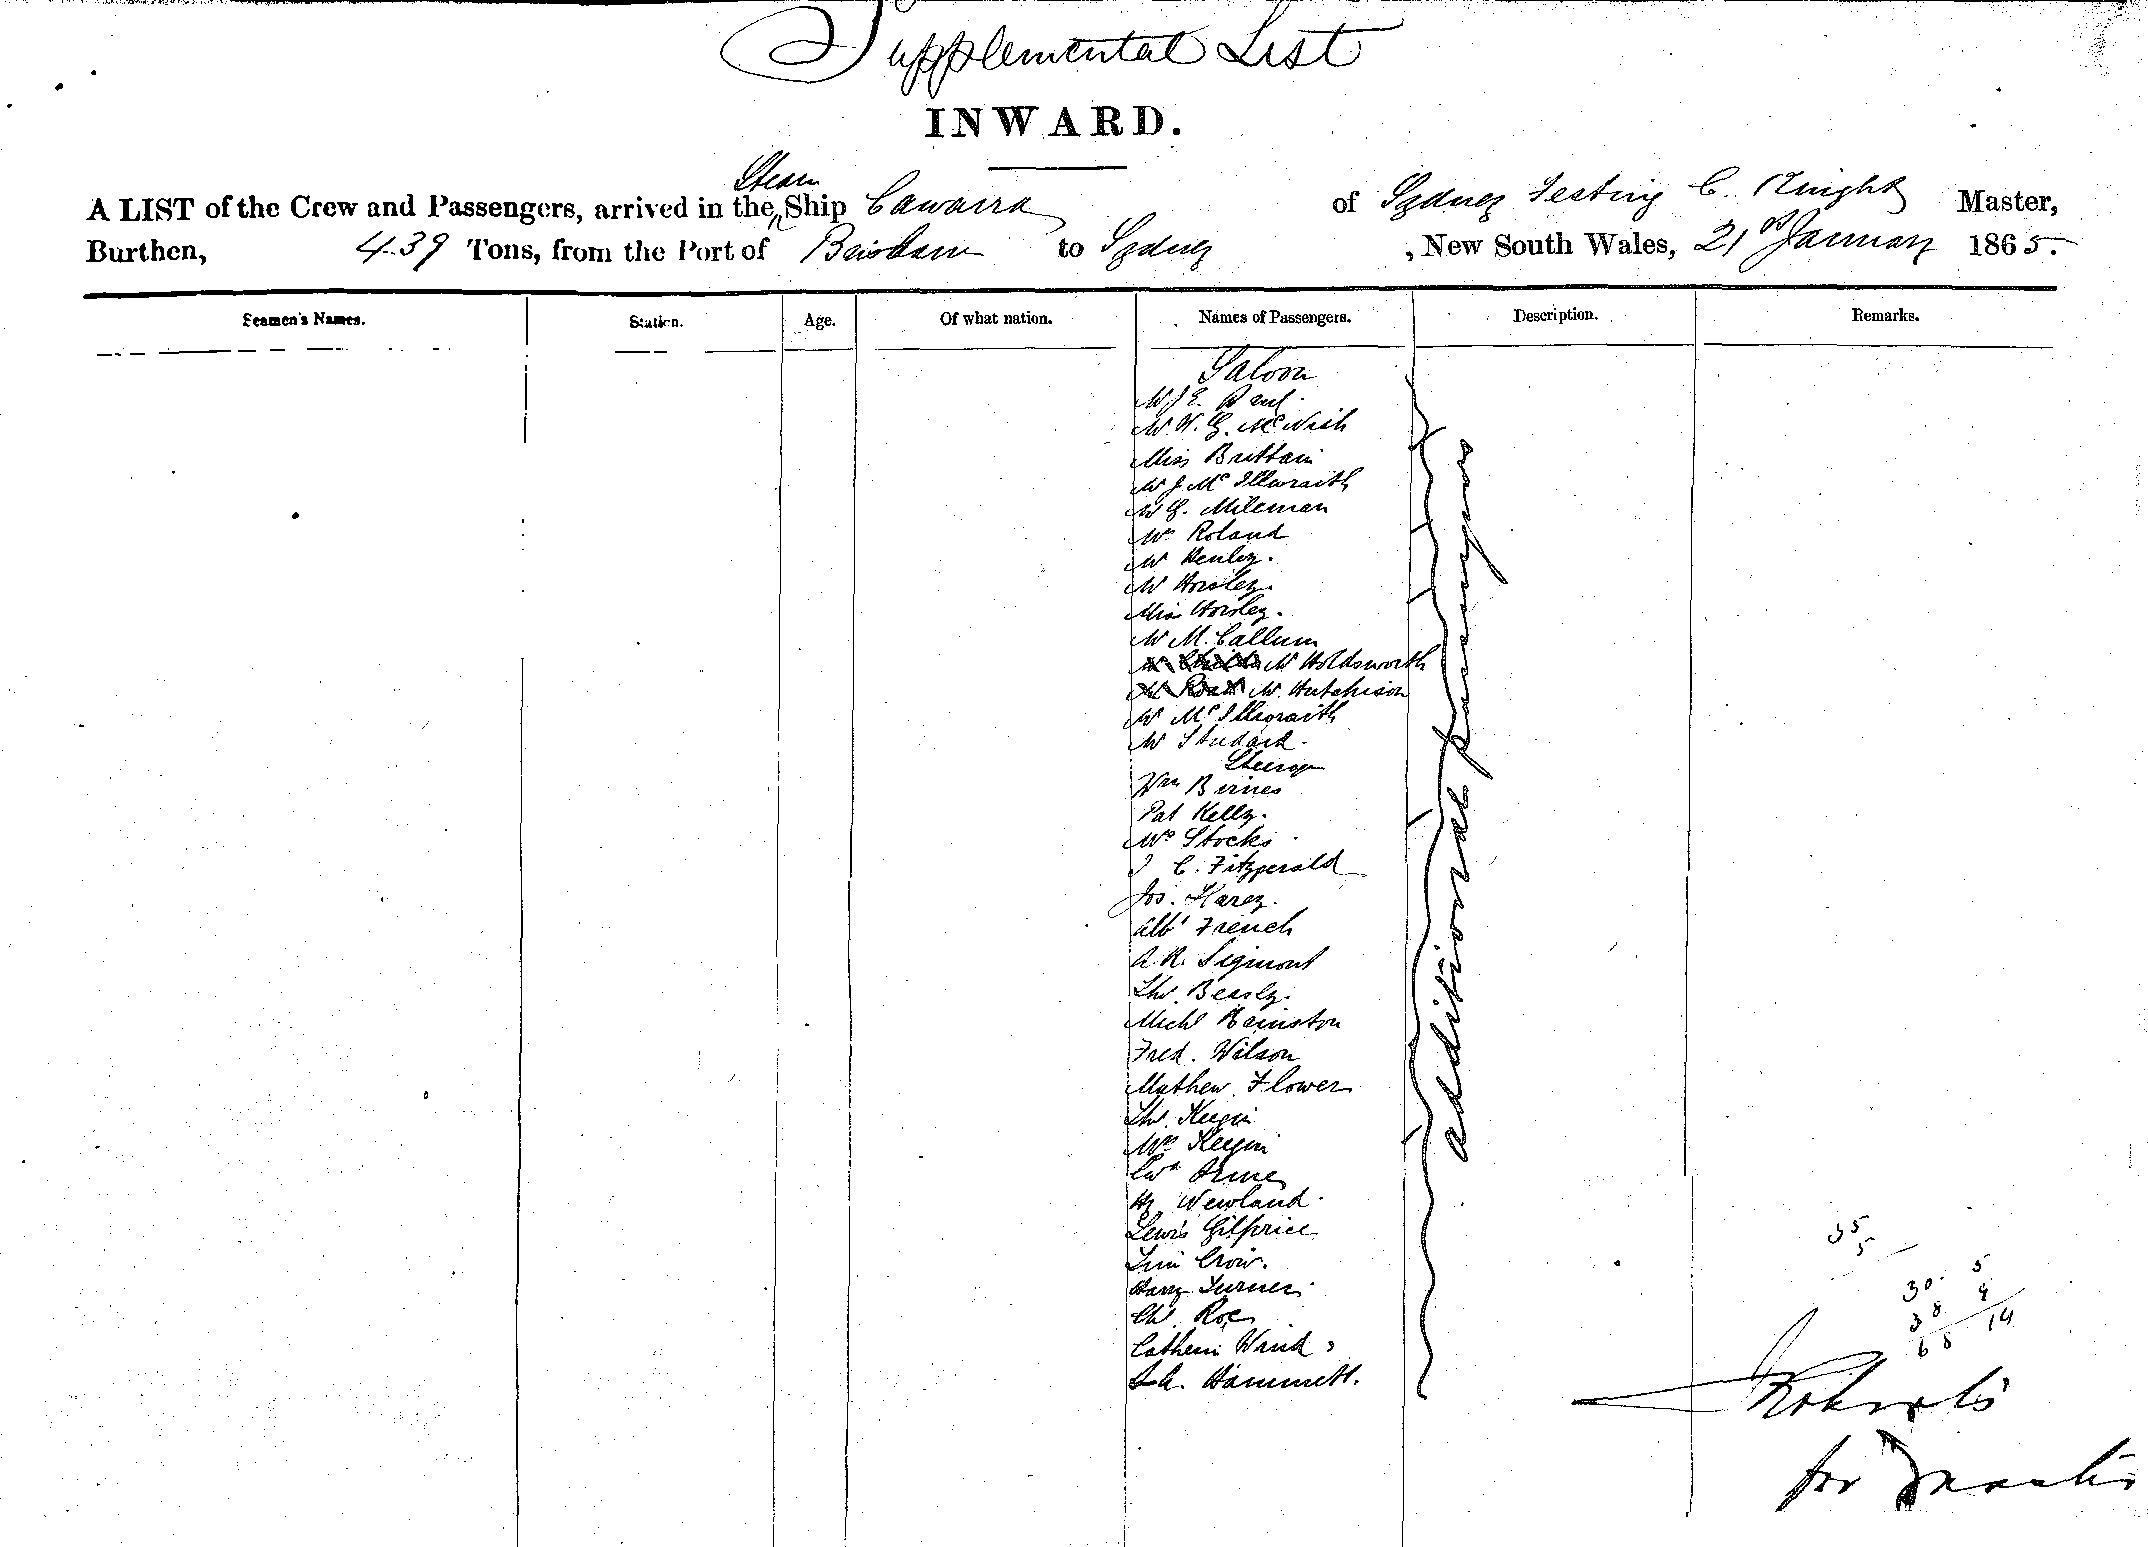 Supplemental List
INWARD.
A LIST of the Crew and Passengers, arrived in the Steam Ship Cawarra of Sydney C. Knight Master,
Burthen, 439 Tons, from the Port of Brisbane to Sydney, New South Wales, 21st January 1865.
Seamen's Names. Station. Age. Of what nation. Names of Passengers. Description. Remarks.
Saloon
Mr J E.
Mr W. G. McNish
Miss Brittain
Mr J McIllwraith
Mr G. Mileman
Mr Roland
Mr Henley.
Mr Horsley.
Miss Horsley.
Mr M. Callum
Mr Holdsworth
Mr Hutchison
Mr McIllwraith
Mr Studard.
Steerage
Wm Birnes
Pat Kelly.
Mrs Stocks
C. Fitzgerald
Jos. Karey.
Albt French
A. R. Sigmont
Thos. Beasly.
Michl Bainston
Fred. Wilson
Mathew Flower
Thos. Keegin
Mrs Keegin
Edwd
Hy Newland.
Lewis Gilprice
Tim Crow.
Harry Turner.
Ch. Roe
Hammett.
additional passengers
35
5
30 5
38 9
68 14
Roberts
for Master